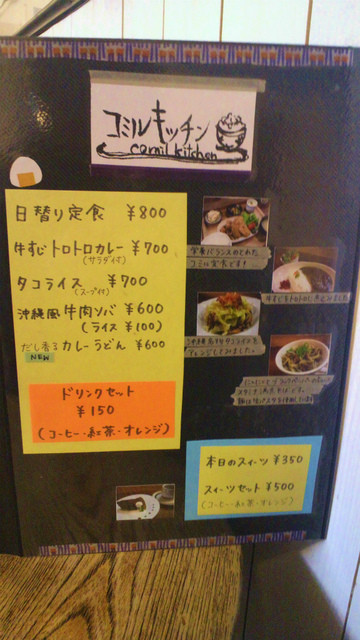 コミルキッチン
comil kitchen
日替り定食 ¥800
牛すじトロトロカレー ¥700
(サラダ付)
タコライス ¥700
(スープ付)
沖縄風牛肉ソバ ¥600
(ライス ¥100)
だし香るカレーうどん ¥600
NEW
ドリンクセット
¥150
(コーヒー・紅茶・オレンジ)
栄養バランスのとれた
コミル定食です!
本日のスィーツ ¥350
スィーツセット ¥500
(コーヒー・紅茶・オレンジ)